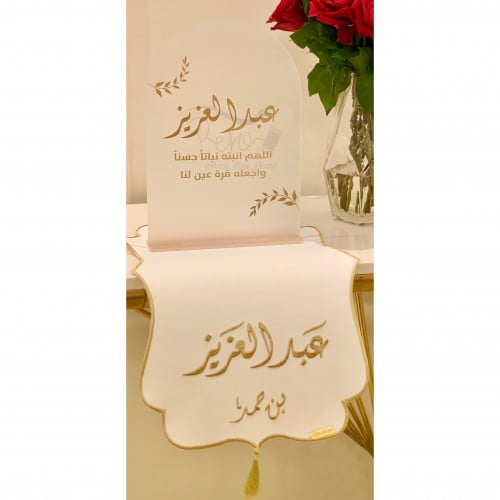 عبدالعزيز
اللهم انبته نباتاً حسناً
واجعله قرة عين لنا
عَبدالعَزيز
بن حمد